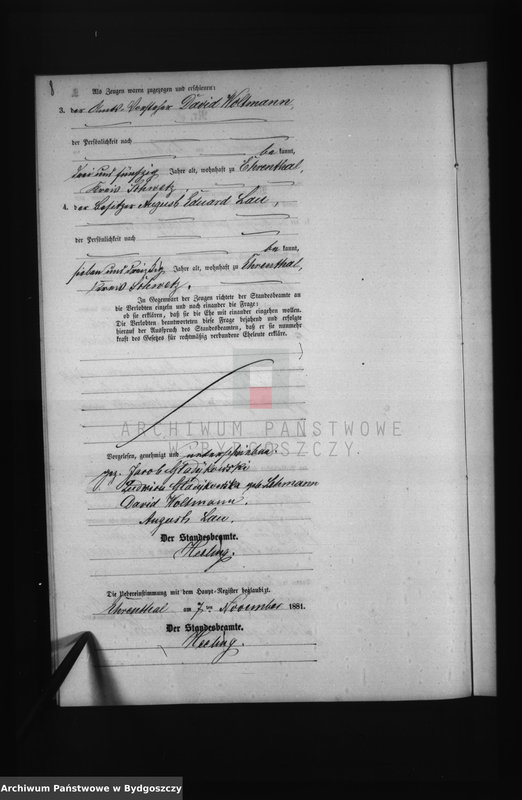 8
Als Zeugen waren zugezogen und erschienen:
3. der Amts-Vorsteher David Woltmann,
der Persönlichkeit nach
be kannt,
drei und fünfzig Jahre alt, wohnhaft zu Ehrenthal,
Kreis Schwetz
4. der Besitzer August Eduard Lau,
der Persönlichkeit nach
be kannt,
sieben und dreißig Jahre alt, wohnhaft zu Ehrenthal,
Kreis Schwetz.
In Gegenwart der Zeugen richtete der Standesbeamte an
die Verlobten einzeln und nach einander die Frage:
ob sie erklären, daß sie die Ehe mit einander eingehen wollen.
Die Verlobten beantworteten diese Frage bejahend und erfolgte
hierauf der Ausspruch des Standesbeamten, daß er sie nunmehr
kraft des Gesetzes für rechtmäßig verbundene Eheleute erkläre.
ARCHIWUM PAŃSTWOWE
W BYDGOSZCZY.
Vorgelesen, genehmigt und unterschrieben:
gez. Jacob
geb Lehmann
David Woltmann.
August Lau.
Der Standesbeamte.
Herling.
Die Uebereinstimmung mit dem Haupt-Register beglaubigt.
Ehrenthal am 7ten November 1881.
Der Standesbeamte.
Herling.
Archiwum Państwowe w Bydgoszczy